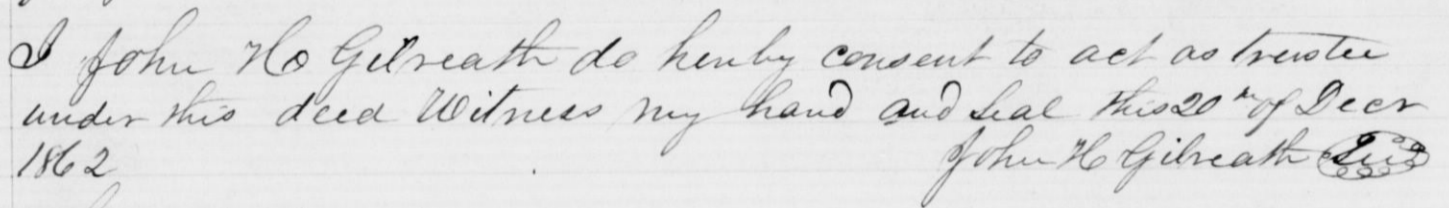 I John H Gilreath do hereby consent to act as trustee
under this deed Witness my hand and seal this 20th of Decr
1862 John H Gilreath